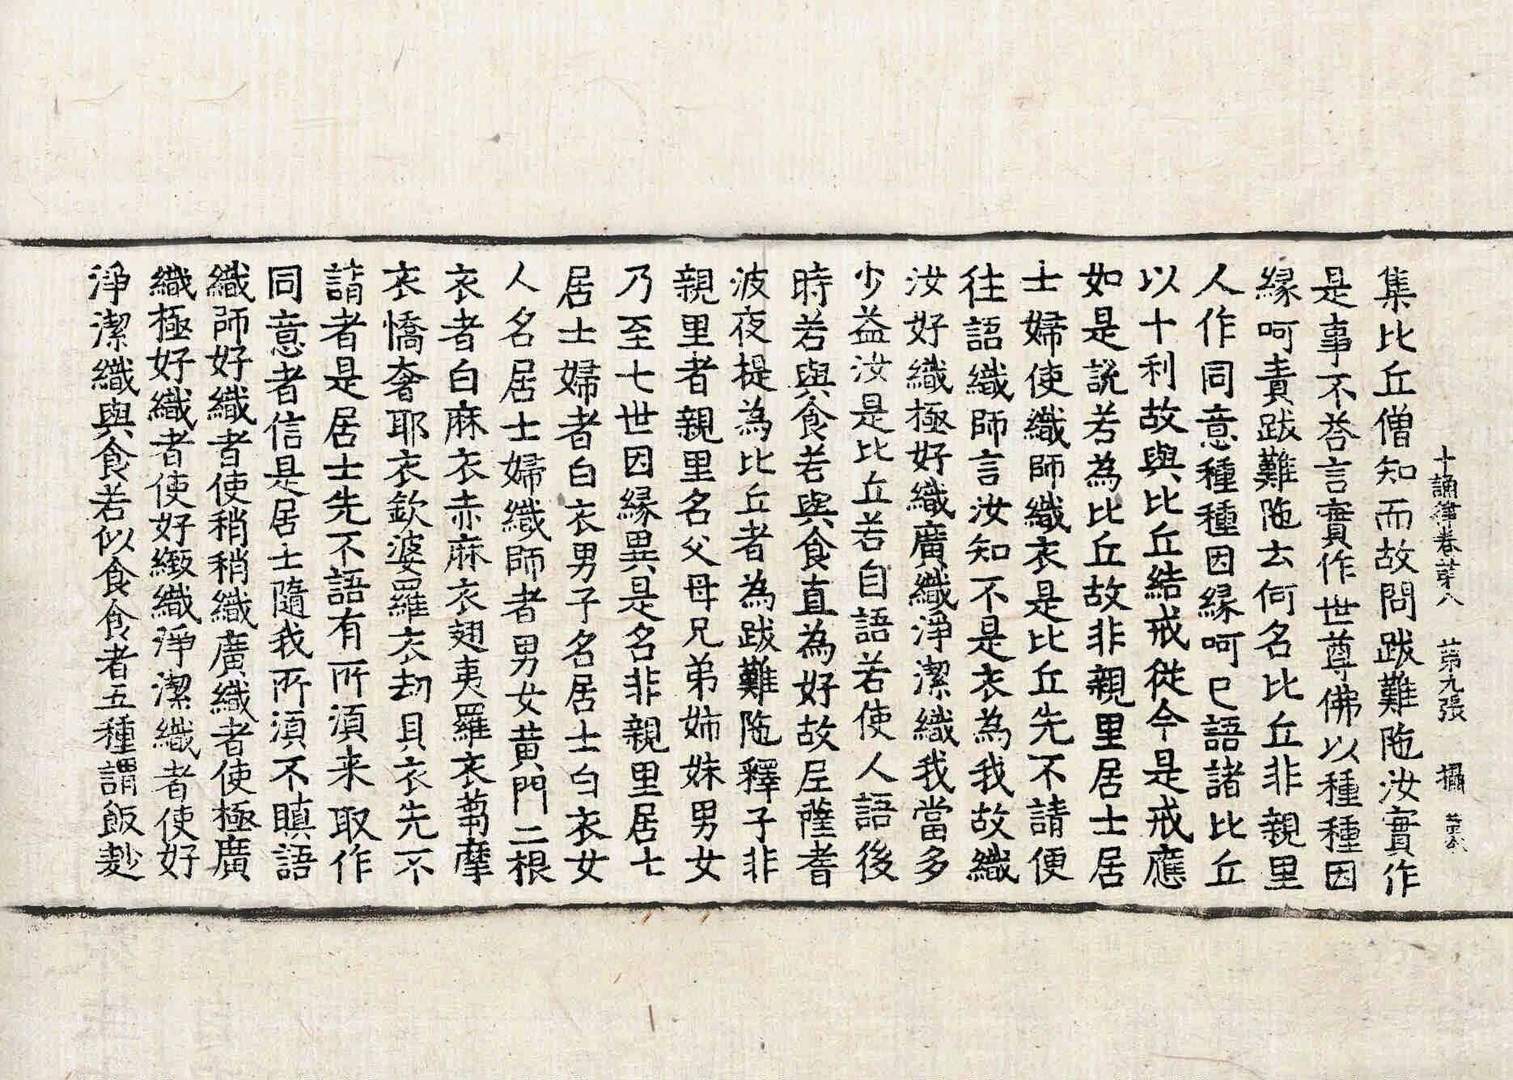 十誦律卷苐八　苐九張　攝
集比丘僧知而故問跋難陁汝實作
是事不荅言實作世尊佛以種種因
緣呵責跋難陁云何名比丘非親里
人作同意種種因緣呵已語諸比丘
以十利故與比丘結戒從今是戒應
如是說若為比丘故非親里居士居
士婦使織師織衣是比丘先不請便
往語織師言汝知不是衣為我故織
汝好織極好織廣織淨潔織我當多
少益汝是比丘若自語若使人語後
時若與食若與食直為好故尼薩耆
波夜提為比丘者為跋難陁釋子非
親里者親里名父母兄弟姊妹男女
乃至七世因緣異是名非親里居士
居士婦者白衣男子名居士白衣女
人名居士婦織師者男女黃門二根
衣者白麻衣赤麻衣翅夷羅衣芻摩
衣憍奢耶衣欽婆羅衣劫貝衣先不
請者是居士先不語有所湏来取作
同意者信是居士隨我所湏不瞋語
織師好織者使稍稍織廣織者使極廣
織極好織者使好緻織淨潔織者使好
淨潔織與食若似食食者五種謂飯麨